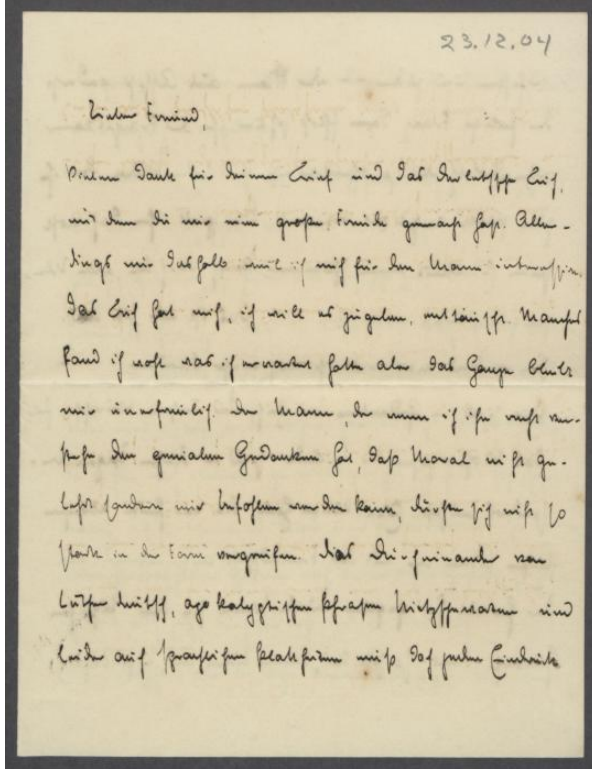 23.12.04
Lieber Freund,
Vielen Dank für Deinen Brief und das Buch,
mit dem Du mir eine große Freude gemacht hast. Aller-
dings nur deshalb weil ich mich für den Mann interessire.
Das Buch hat mich, ich will es zugeben, enttäuscht. Manches
fand ich wohl was ich erwartet hatte aber das Ganze bleibt
mir unerfreulich. Der Mann, der wenn ich ihn recht ver-
stehe den genialen Gedanken hat, daß Moral nicht ge-
lehrt sondern nur befohlen werden kann, dürfte sich nicht so
stark in der Form vergreifen. Dies Durcheinander von
Luther deutsch, apokalyptischen Phrasen Nietzscheworten und
leider auch sprachlichen Plattheiten muß doch jeden Eindruck